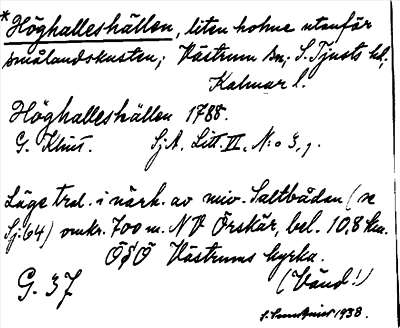 *Höghalleshällen, liten holme utanför
smålandskusten; Västrum sn; S. Tjusts hd,
Kalmar l.
Höghalleshällen 1788.
G. Klint. SjA. Litt. VI, N:o 3, 1.
Läge trol. i närh. av nuv. Saltbådan (se
Sj. 64) omkr. 700 m. NV Örskär, bel. 10,8 km.
ÖSÖ Västrums kyrka.
G. 37 (Vänd!)
1938.